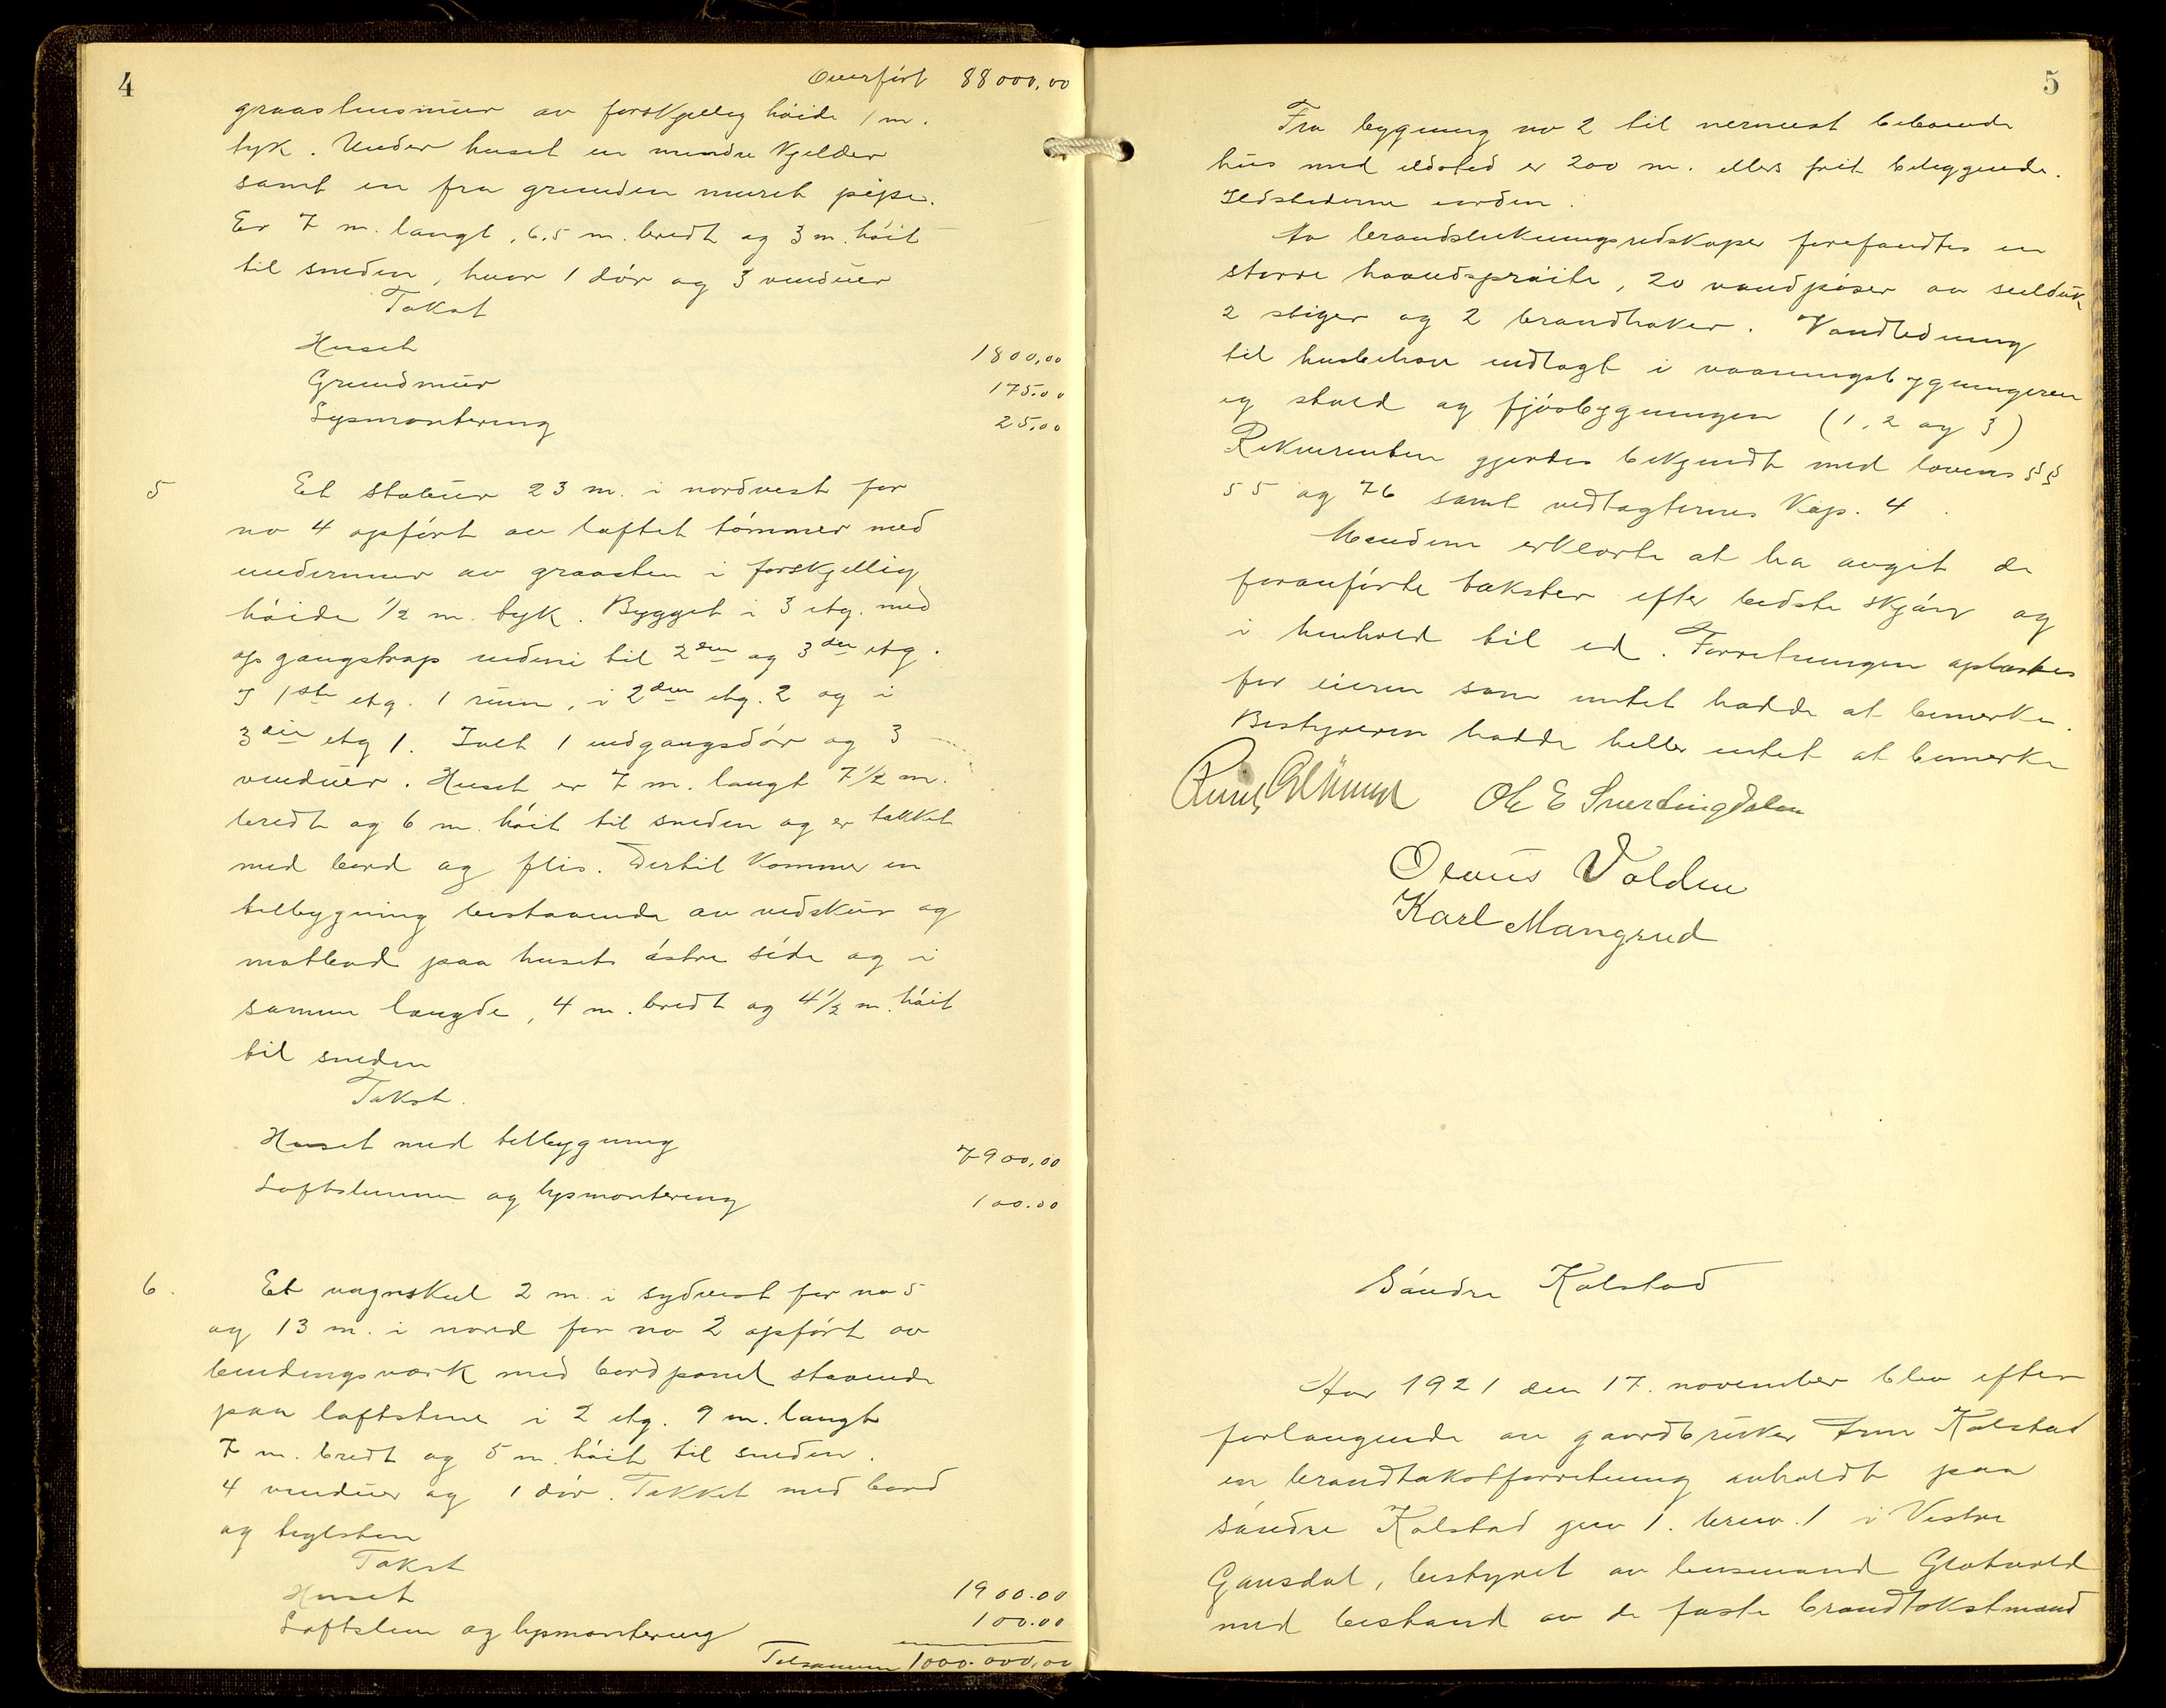 4
Overført 88000,00
graastensmur av forskjellig høide 1 m.
tyk. Under huset en mindre kjelder
samt en fra grunden muret pipe.
Er 7 m. langt, 6,5 m. bredt og 3 m. høit
til sneden, hvor 1 dør og 3 vinduer
Takst
Huset 1800,00
Grundmur 175.00
Lysmontering 25,00
5 Et stabur 23 m. i nordvest for
no 4 opført av laftet tømmer med
undermur av graasten i forskjellig
høide 1/2 m. tyk. Bygget i 3 etg. med
opgangstrap indeni til 2den og 3den etg.
I 1ste etg. 1 rum, i 2den etg. 2 og i
3die etg 1. Ialt 1 indgangsdør og 3
vinduer. Huset er 7 m. langt 7 1/2 m.
bredt og 6 m. høit til sneden og er tækket
med bord og flis. Dertil kommer en
tilbygning bestaaende av vedskur og
matbod paa husets østre side og i
samme længde, 4 m. bredt og 4 1/2 m. høit
til sneden
Takst.
Huset med tilbygning 7900,00
Loftslemmer og lysmontering 100.00
6. Et vognskul 2 m. i sydvest for no 5
og 13 m. i nord for no 2 opført av
bindingsverk med bordpanel staaende
paa i 2 etg. 9 m. langt
7 m. bredt og 5 m. høit til sneden.
4 vinduer og 1 dør. Tækket med bord
og teglsten
Takst
Huset 1900.00
Loftslem og lysmontering 100.00
Tilsammen 1000.000,00
5
Fra bygning no 2 til nermest beboende
hus med ildsted er 200 m. ellers frit beliggende.
Ildstederne iorden.
Av brandslukningsredskaper forefandtes en
større haandsprøite, 20 vandpøser av seilduk
2 stiger og 2 brandhaker. Vandledning
til husbehov indlagt i vaaningsbygningeren
og stald og fjøsbygningen (1, 2 og 3)
Rekvirenten gjordes bekjendt med lovens §§
55 og 76 samt vedtægternes Kap. 4.
Mendene erklærte at ha avgit de
foranførte takster efter bedste skjøn og
i henhold til ed. Forretningen oplæstes
for eieren som intet hadde at bemerke.
Bestyreren hadde heller intet at bemerke
Ole E Svertingdalen
Olaus Volden
Karl Mangrud
Søndre Kolstad
Aar 1921 den 17. november blev efter
forlangende av gaardbruker Kolstad
en brandtakstforretning avholdt paa
søndre Kolstad gno 1. brno. 1 i Vestre
Gausdal, bestyret av lensmand Gløtvold
med bistand av de faste brandtakstmænd